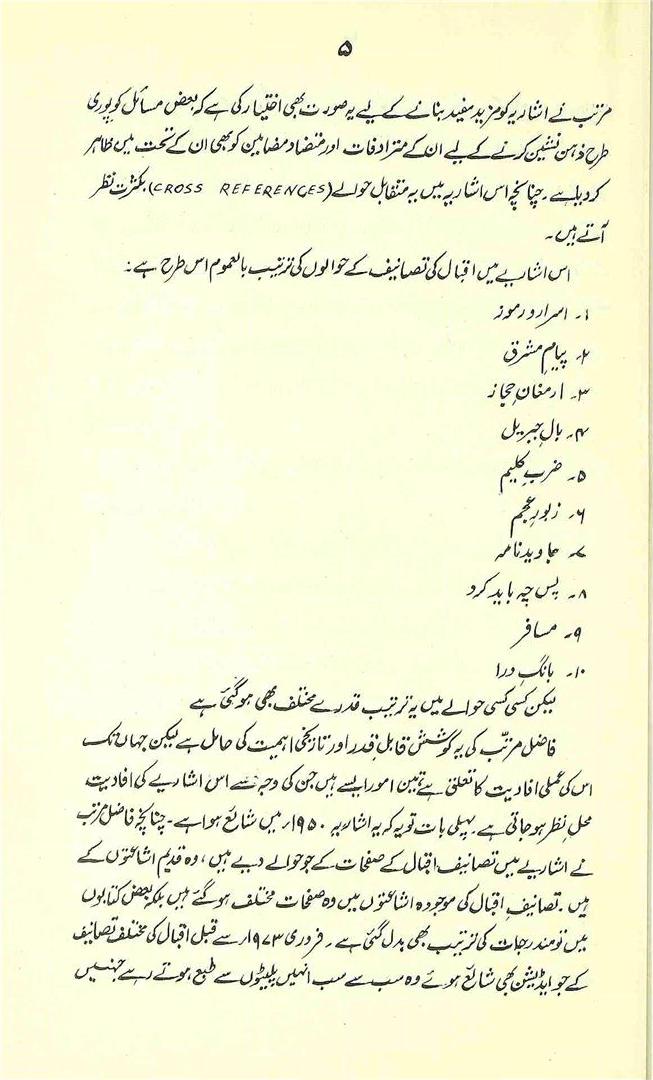 ۵
مرتب نے اشاریہ کو مزید مفید بنانے کے لیے یہ صورت بھی اختیار کی ہے کہ بعض مسائل کو پوری
طرح ذہن نشین کرنے کے لیے ان کے مترادفات اور متضاد مضامین کو بھی ان کے تحت میں ظاہر
کر دیا ہے۔ چنانچہ اس اشاریہ میں یہ متقابل حوالے (CROSS REFERENCES) بکثرت نظر
آتے ہیں۔
اس اشاریے میں اقبال کی تصانیف کے حوالوں کی ترتیب بالعموم اس طرح ہے:
۱۔ اسرار و رموز
۲۔ پیامِ مشرق
۳۔ ارمغانِ حجاز
۴۔ بالِ جبریل
۵۔ ضربِ کلیم
۶۔ زبورِ عجم
۷۔ جاوید نامہ
۸۔ پس چہ باید کرد
۹۔ مسافر
۱۰۔ بانگِ درا
لیکن کسی کسی حوالے میں یہ ترتیب قدرے مختلف بھی ہو گئی ہے
فاضل مرتّب کی یہ کوشش قابلِ قدر اور تاریخی اہمیت کی حامل ہے لیکن جہاں تک
اس کی عملی افادیت کا تعلق ہے تین امور ایسے ہیں جن کی وجہ سے اس اشاریے کی افادیت
محلِ نظر ہو جاتی ہے۔ پہلی بات تو یہ کہ یہ اشاریہ ۱۹۵۰ء میں شائع ہوا ہے۔ چنانچہ فاضل مرتب
نے اشاریے میں تصانیفِ اقبال کے صفحات کے جو حوالے دیے ہیں، وہ قدیم اشاعتوں کے
ہیں۔ تصانیفِ اقبال کی موجودہ اشاعتوں میں وہ صفحات مختلف ہو گئے ہیں بلکہ بعض کتابوں
میں تو مندرجات کی ترتیب بھی بدل گئی ہے۔ فروری ۱۹۷۳ء سے قبل اقبال کی مختلف تصانیف
کے جو ایڈیشن بھی شائع ہوئے وہ سب سے سب انہیں پلیٹوں سے طبع ہوتے رہے جنہیں